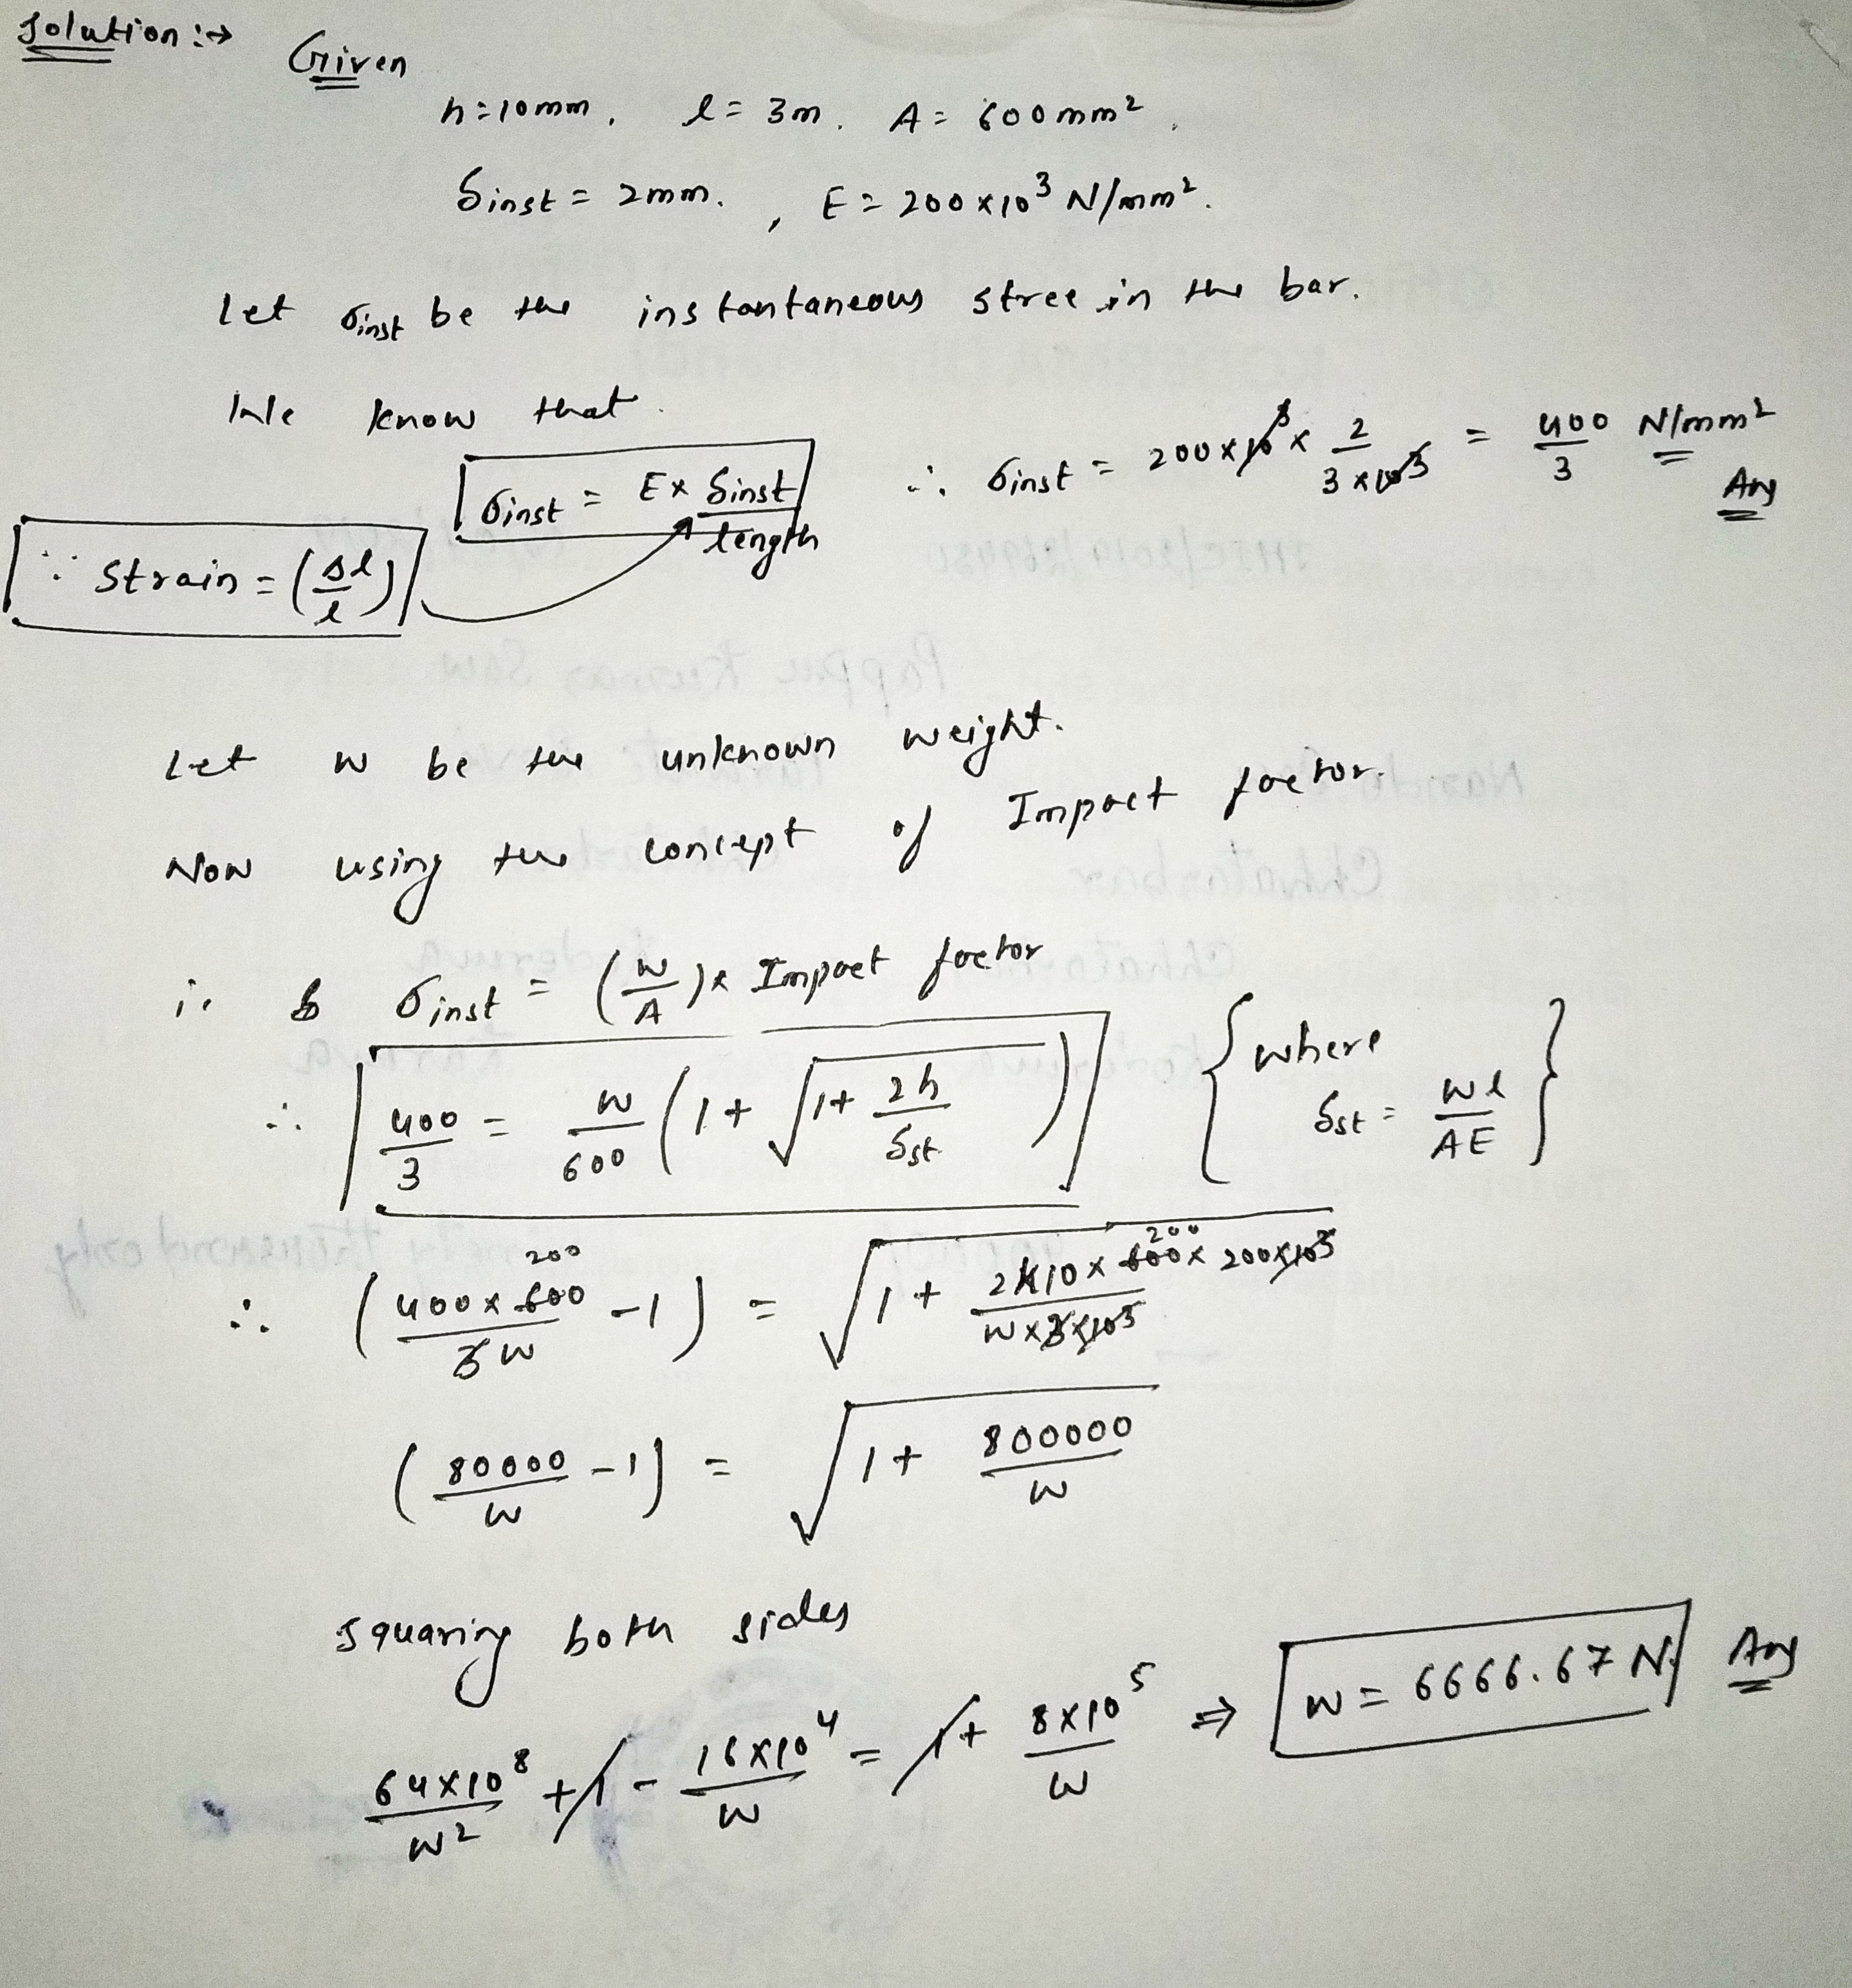 Solution :→ Given
h = 10mm, l = 3m. A = 600mm²,
δinst = 2mm. , E = 200 × 10³ N/mm².
Let σinst be the instantaneous stree in the bar.
We know that.
σinst = E × δinst/length ∴ σinst = 200 × 10³ × 2/(3 × 10³) = 400/3 N/mm² Ans
∵ Strain = (Δl/l)
Let W be the unknown weight.
Now using the concept of Impact factor.
ie σinst = (W/A) × Impact factor
∴ 400/3 = W/600 (1 + √(1 + 2h/δst)) {where δst = Wl/AE}
∴ (400 × 600 200/3W − 1) = √(1 + 2×10 × 600 200 × 200×10³/(W×3×10³))
(80000/W − 1) = √(1 + 800000/W)
squaring both sides
64×10⁸/W² + 1 − 16×10⁴/W = 1 + 8×10⁵/W ⇒ W = 6666.67 N. Ans